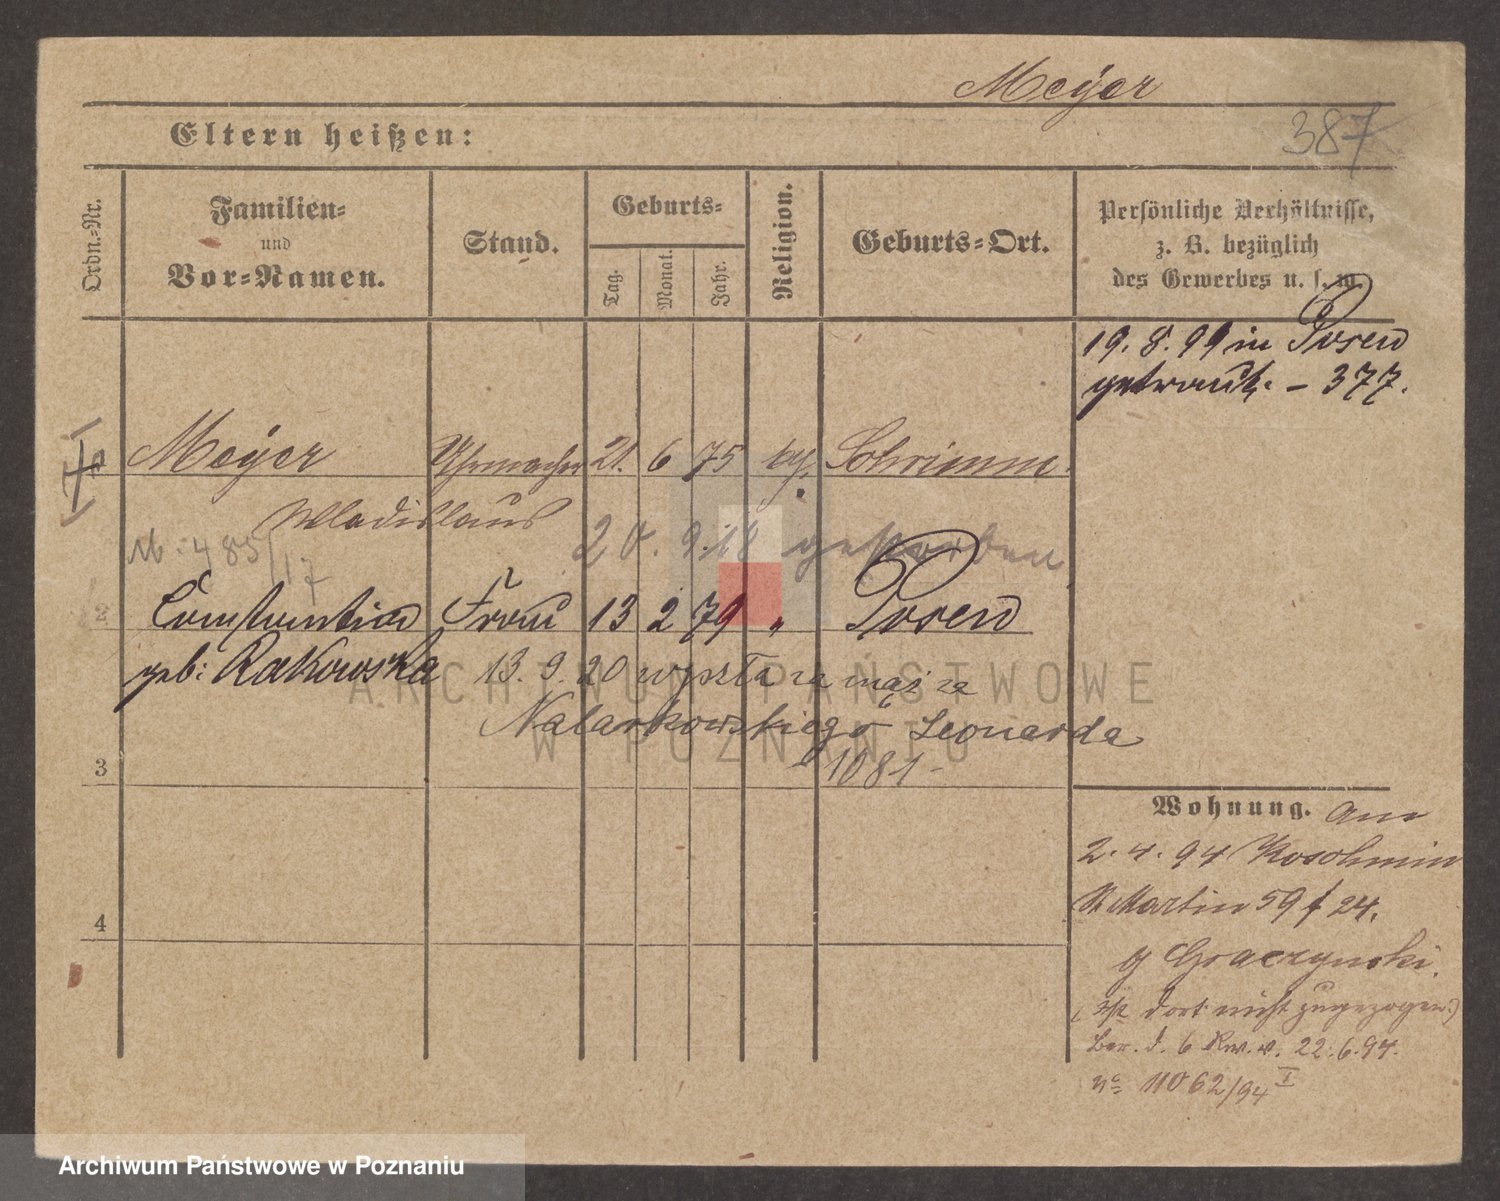 Meÿer
387
Eltern heißen:
Ordn.-Nr.
Familien-
und
Vor-Namen.
Stand.
Geburts-
Tag.
Monat.
Jahr.
Religion.
Geburts-Ort.
Persönliche Verhältnisse,
z. B. bezüglich
des Gewerbes u. s. w.
19. 8. 99 in Posen
getraut. – 377.
Meÿer Uhrmacher 21. 6 75 kath. Schrimm.
Wladislaus
20. 9. 18 gestorben
485/17
2 Constantia Frau 13 2 79 " Posen
geb: Rakowska 13. 9. 20 wyszła za mąż za
Nalaskowskiego Leonarda
1081 –
3
4
Wohnung. am
2. 4. 94 Koschmin
St Martin 59 f 24.
g Graczynski.
(ist dort nicht zugezogen.)
Ber. d. 6 Rev. v. 22. 6. 94.
No 11062/94 I
ARCHIWUM PAŃSTWOWE
W POZNANIU
Archiwum Państwowe w Poznaniu